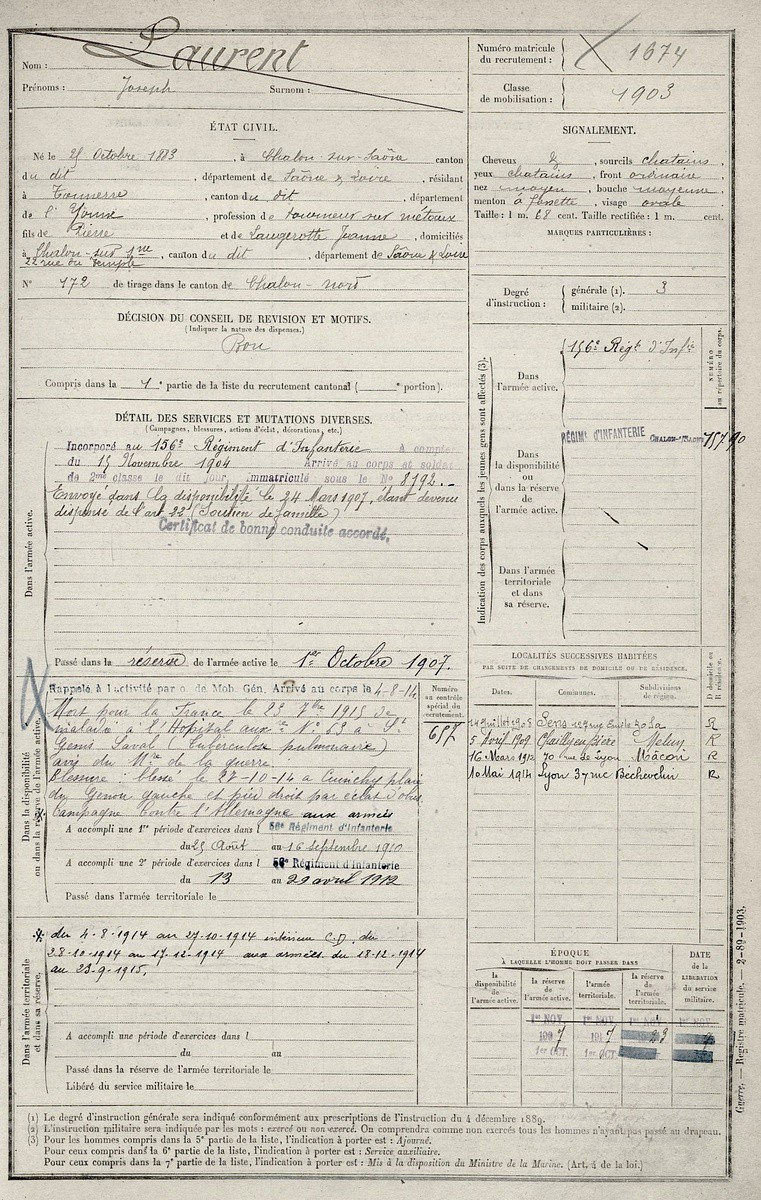 Nom : Laurent
Prénoms : Joseph Surnom :
Numéro matricule du recrutement : 1674
Classe de mobilisation : 1903
ÉTAT CIVIL.
Né le 25 Octobre 1883, à Chalon-sur-Saône canton
du dit, département de Saône & Loire, résidant
à Tonnerre, canton du dit, département
de l'Yonne, profession de tourneur sur métaux
fils de Pierre et de Laugerotte Jeanne, domiciliés
à Chalon-sur Sne, canton du dit, département de Saône & Loire
22 rue du Temple
N° 172 de tirage dans le canton de Chalon-nord
SIGNALEMENT.
Cheveux &, sourcils chatains.
yeux chatains, front ordinaire
nez moyen, bouche moyenne
menton à fossette, visage ovale
Taille : 1 m. 68 cent. Taille rectifiée : 1 m. cent.
MARQUES PARTICULIÈRES :
Degré d'instruction :
générale (1). 3
militaire (2).
DÉCISION DU CONSEIL DE REVISION ET MOTIFS.
(Indiquer la nature des dispenses.)
Bon
Compris dans la 1e partie de la liste du recrutement cantonal ( e portion).
DÉTAIL DES SERVICES ET MUTATIONS DIVERSES.
(Campagnes, blessures, actions d'éclat, décorations, etc.)
Dans l'armée active.
Incorporé au 156e Régiment d'Infanterie A compter
du 15 Novembre 1904 Arrivé au corps et soldat
de 2me classe le dit jour immatriculé sous le No 8192.-
Envoyé dans la disponibilité le 24 Mars 1907, étant devenu
dispensé de l'art 22 (Soutien de famille)
Certificat de bonne conduite accordé.
Passé dans la réserve de l'armée active le 1er Octobre 1907.
Dans la disponibilité
ou dans la réserve de l'armée active.
Rappelé à l'activité par o. de Mob. Gén. Arrivé au corps le 4-8-14
Mort pour la France le 23 7bre 1915 de
maladie à l'Hôpital aux re N° 63 à St
Genis Laval (Tuberculose pulmonaire)
avis du Mre de la guerre.
Blessure : blessé le 27-10-14 à Cuinchy plaie
du Genou gauche et pied droit par éclat d'obus
Campagne Contre l'Allemagne aux armées
A accompli une 1re période d'exercices dans l 56e Régiment d'Infanterie
du 25 Aout au 16 septembre 1910
A accompli une 2e période d'exercices dans l 56e Régiment d'Infanterie
du 13 au 29 avril 1912
Passé dans l'armée territoriale le
Numéro au contrôle spécial du recrutement.
657
Dans l'armée territoriale
et dans sa réserve.
du 4-8-1914 au 27-10-1914 intérieur C.D. du
28-10-1914 au 17-12-1914 aux armées du 18-12-1914
au 23-9-1915.
A accompli une période d'exercices dans l
du au
Passé dans la réserve de l'armée territoriale le
Libéré du service militaire le
Indication des corps auxquels les jeunes gens sont affectés (3).
Dans l'armée active.
156e Régt d'Infie
NUMÉRO au répertoire du corps.
Dans la disponibilité ou dans la réserve de l'armée active.
RÉGIMt D'INFANTERIE CHALON-S-SAONE
Dans l'armée territoriale et dans sa réserve.
LOCALITÉS SUCCESSIVES HABITÉES
PAR SUITE DE CHANGEMENTS DE DOMICILE OU DE RÉSIDENCE.
Dates. Communes. Subdivisions de région. D domicile ou R résidence.
14 Juillet 1908 Sens 129 rue Emile Zola R
5 Avril 1909 Chailly en Bière Melun R
16 Mars 1912 70 rue de Lyon Mâcon R
10 Mai 1914 Lyon 37 rue Bechevelin R
ÉPOQUE
À LAQUELLE L'HOMME DOIT PASSER DANS
la disponibilité de l'armée active. la réserve de l'armée active. l'armée territoriale. la réserve de l'armée territoriale.
DATE de la LIBÉRATION du service militaire.
1er NOV. 1er NOV. 1er NOV.
1907 1917 23
1er OCT. 1er OCT.
Guerre. — Registre matricule. — 2-89-1903.
(1) Le degré d'instruction générale sera indiqué conformément aux prescriptions de l'instruction du 4 décembre 1889.
(2) L'instruction militaire sera indiquée par les mots : exercé ou non exercé. On comprendra comme non exercés tous les hommes n'ayant pas passé au drapeau.
(3) Pour les hommes compris dans la 5e partie de la liste, l'indication à porter est : Ajourné.
Pour ceux compris dans la 6e partie de la liste, l'indication à porter est : Service auxiliaire.
Pour ceux compris dans la 7e partie de la liste, l'indication à porter est : Mis à la disposition du Ministre de la Marine. (Art. 4 de la loi.)